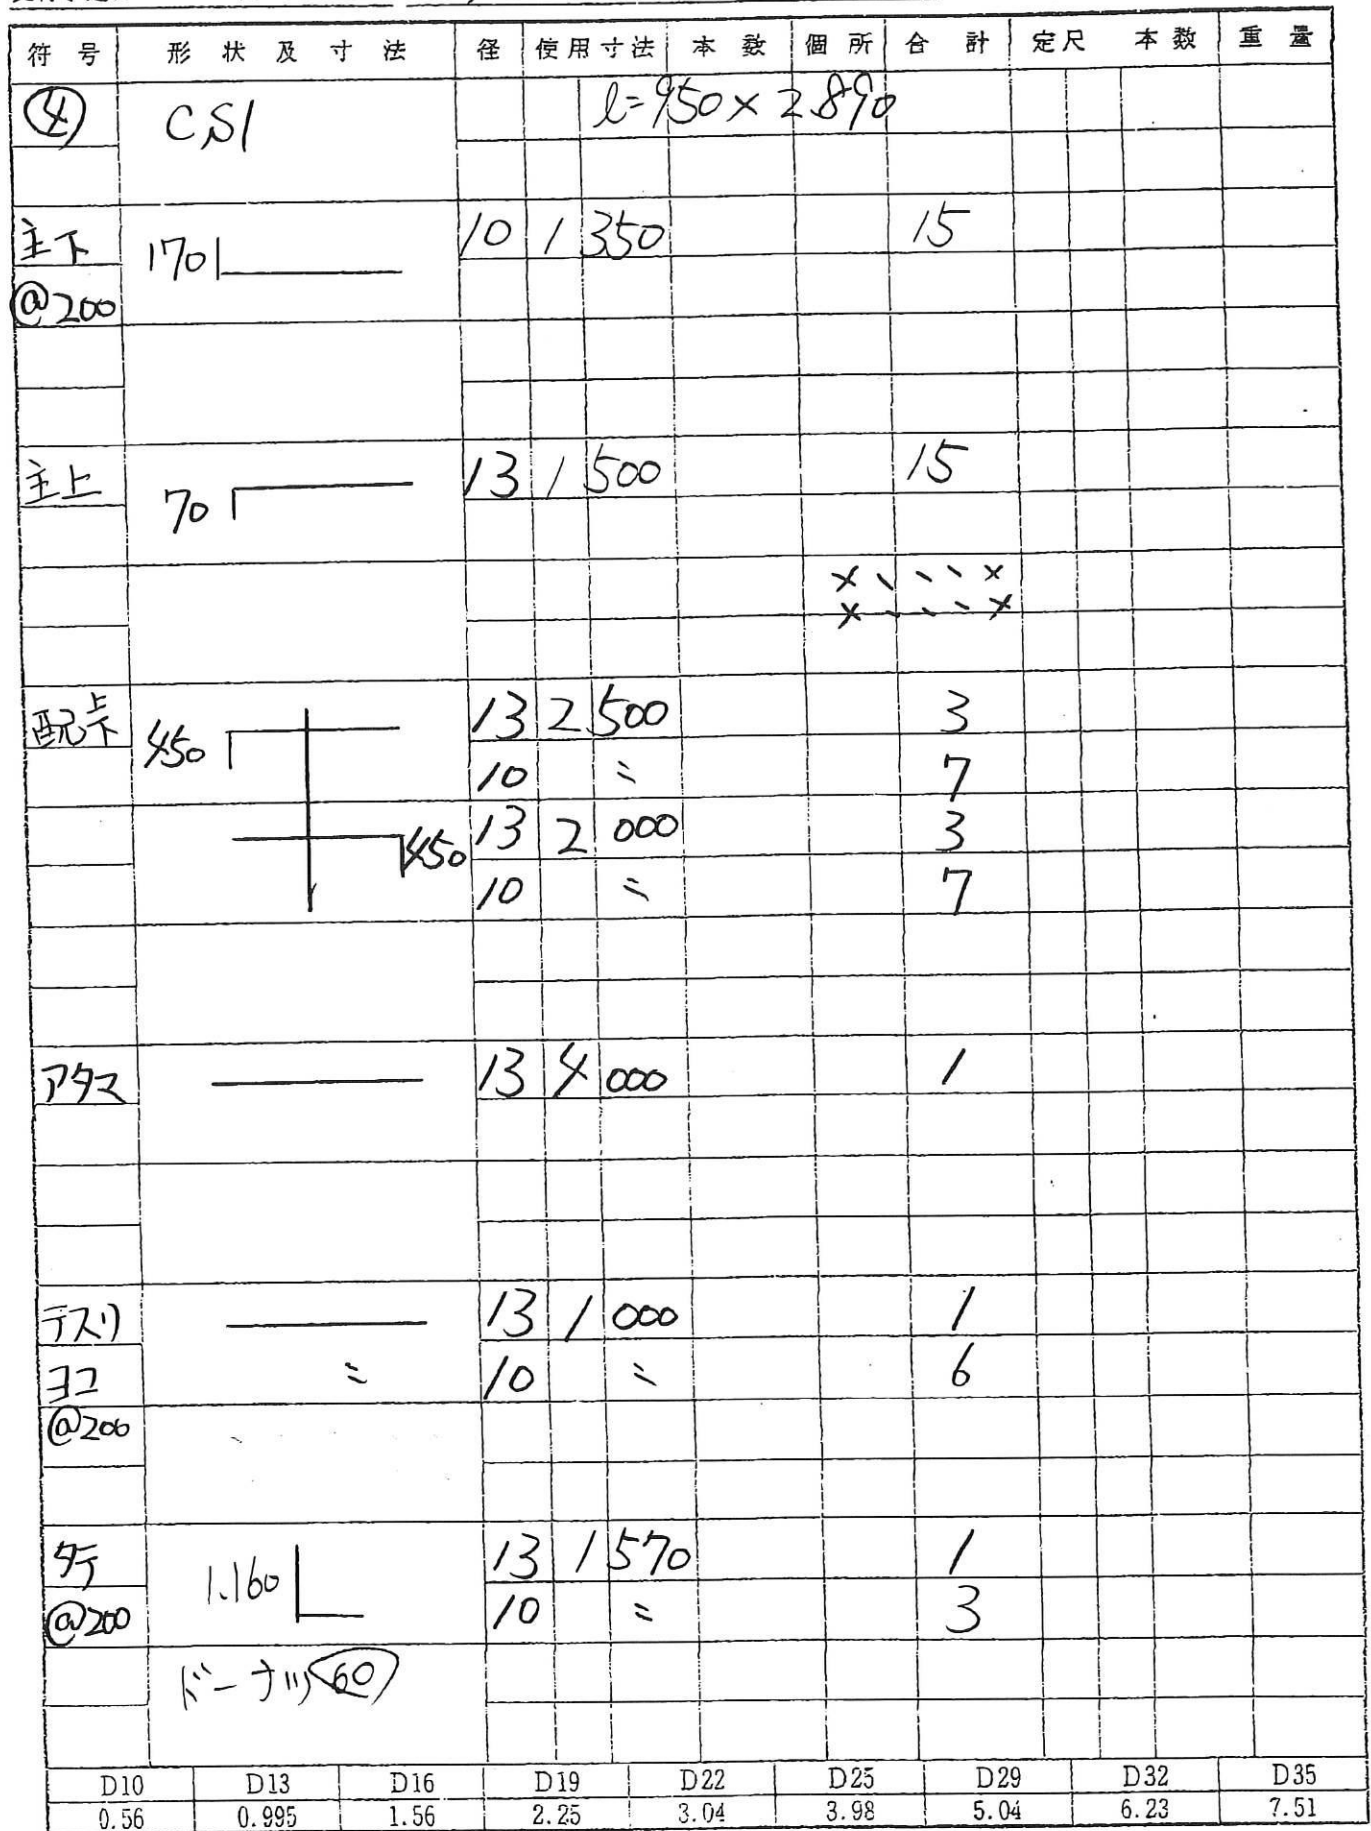 符号 形状及寸法 径 使用寸法 本数 個所 合計 定尺 本数 重量
④ CS1 l=950×2.890
主下 170 10 1 350 15
@200
主上 70 13 1 500 15
× 、 、 、 ×
× 、 、 、 ×
配上下 450 13 2 500 3
10 〃 7
450 13 2 000 3
10 〃 7
アタマ 13 4 000 1
テスリ 13 1 000 1
ヨコ 〃 10 〃 6
@200
タテ 1.160 13 1 570 1
@200 10 〃 3
ドーナツ 60
D10 D13 D16 D19 D22 D25 D29 D32 D35
0.56 0.995 1.56 2.25 3.04 3.98 5.04 6.23 7.51